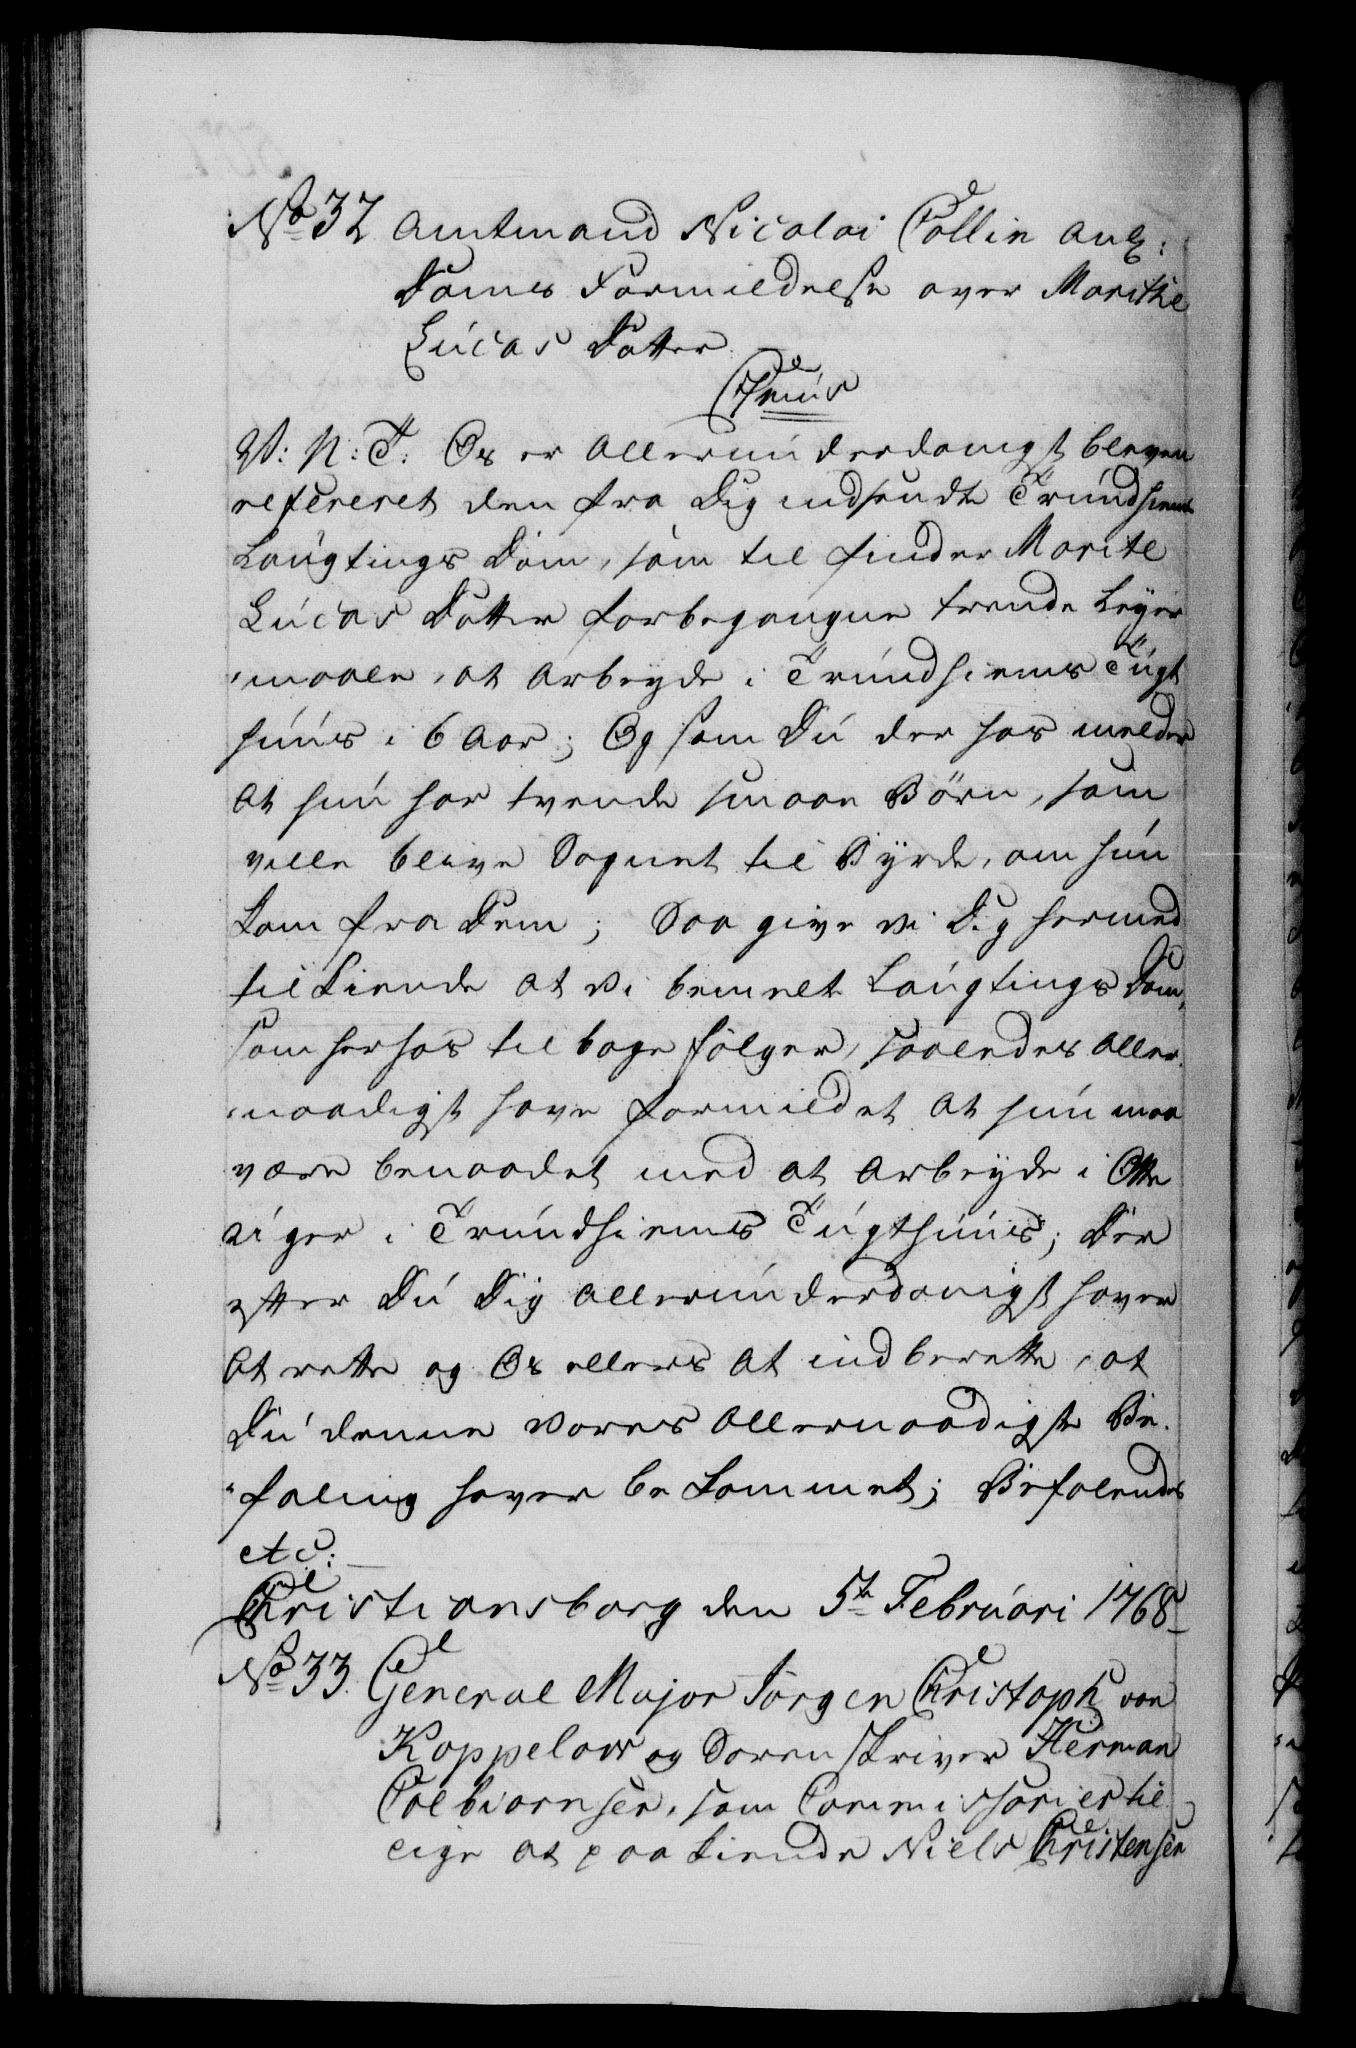 No 32 Amtmand Nicolai Collin ang:
Doms Formildelse over Marithe
Lúcas Datter.
Chr: 7mús
V: N: T: Os er allerunderdanigst bleven
refereret den fra Dig indsendte Trúndhiems
Laugtings Dom, som til finder Marite
Lúcas Datter for begangne trende Leyer-
maale, at arbeyde i Trúndhiems Túgt
húús i 6 Aar; Og som Dú der hos melder
at hún har tvende smaae Börn, som
ville blive Sognet til Byrde, om hún
kom fra Dem; Saa give vi Dig hermed
tilkiende at vi bemelte Laúgtings Dom,
som herhos tilbage fölger, saaledes Aller-
naadigst have formildet at hún maa
være benaadet med at arbeyde i Otte
Uger i Trúndhiems Túgthúús; Der
efter Dú Dig allerúnderdanigst haver
at rette og Os ellers at indberette, at
Dú denne Vores Allernaadigste Be-
faling haver bekommet; Befalendes
etc:
Christiansborg den 5te Februari 1768
No 33. General Major Jörgen Christoph von
Koppelow og Sorenskriver Herman
Colbiörnsen, som Commissarier til-
lige at paakiende Niels Christensen